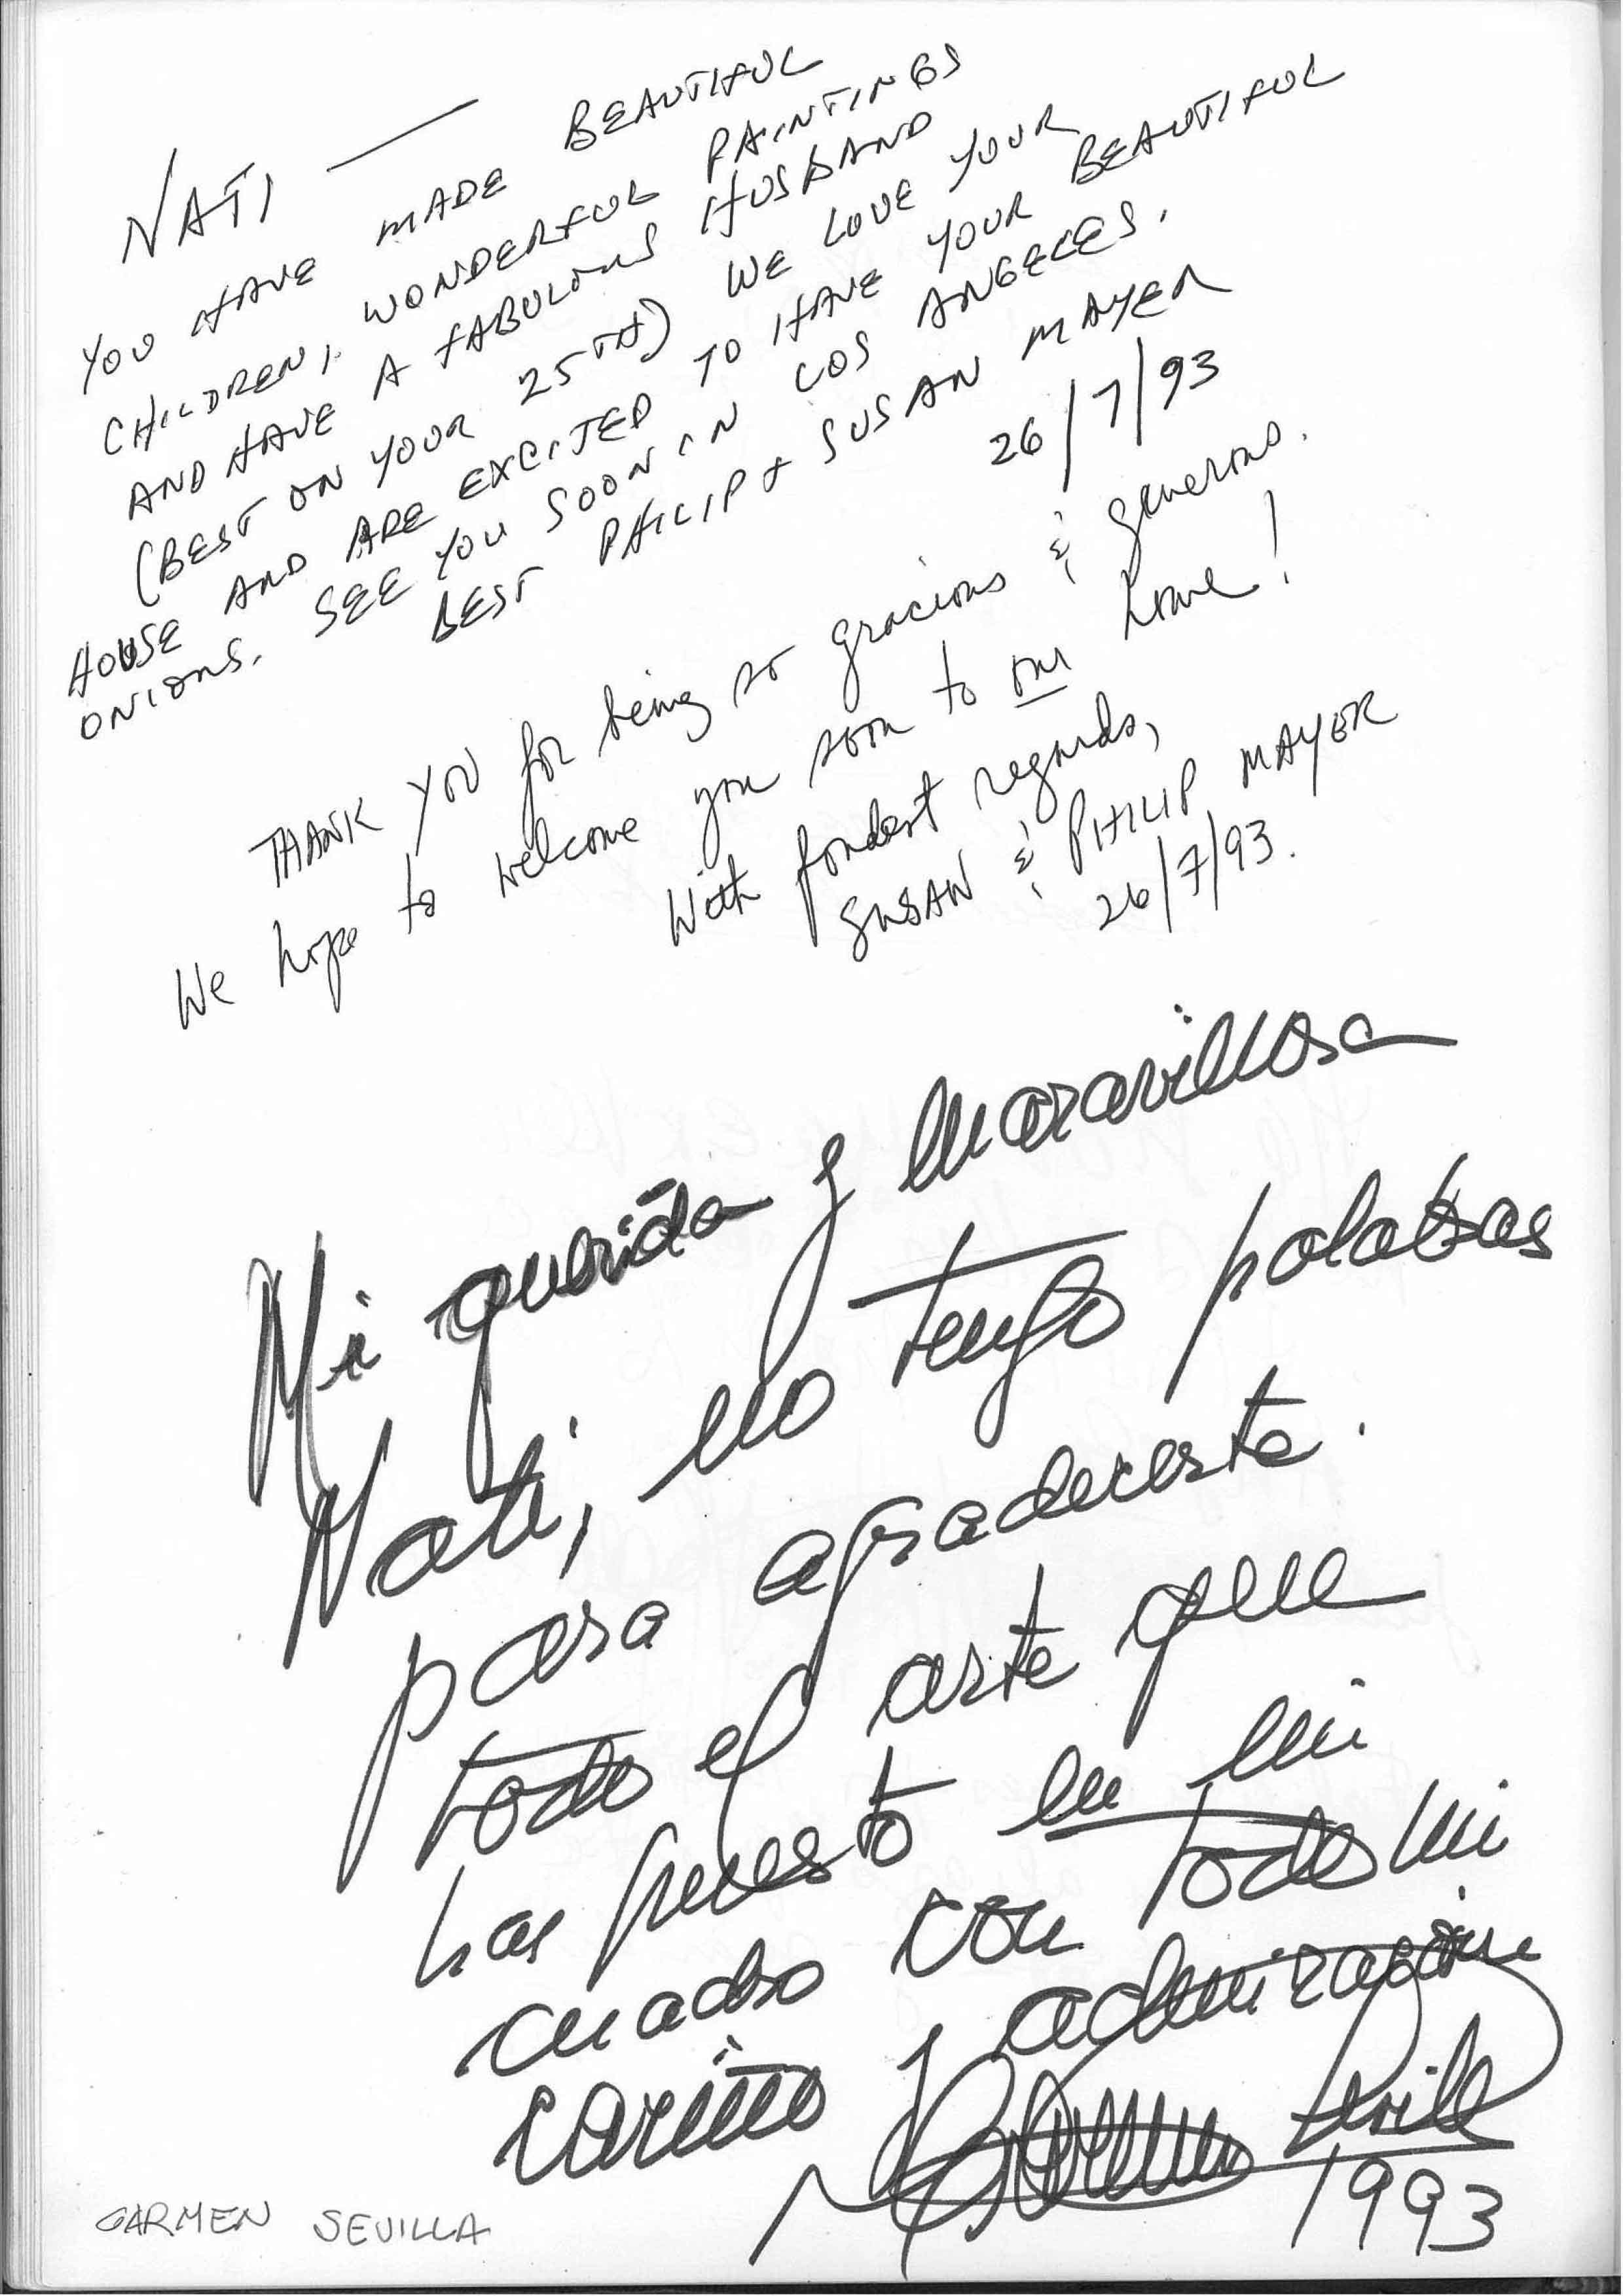 NATI —
YOU HAVE MADE BEAUTIFUL
CHILDREN, WONDERFUL PAINTINGS
AND HAVE A FABULOUS HUSBAND
(BEST ON YOUR 25TH) WE LOVE YOUR
HOUSE AND ARE EXCITED TO HAVE YOUR BEAUTIFUL
ONIONS. SEE YOU SOON IN LOS ANGELES.
BEST PHILIP + SUSAN MAYER
26/7/93
THANK YOU for being so gracious & generous.
We hope to welcome you soon to our home!
With fondest regards,
SUSAN & PHILIP MAYER
26/7/93.
Mi querida y maravillosa
Nati, no tengo palabras
para agradecerte.
todo el arte que
has puesto en mi
cuadro con todo mi
cariño y admiración
Carmen Sevilla
1993
CARMEN SEVILLA